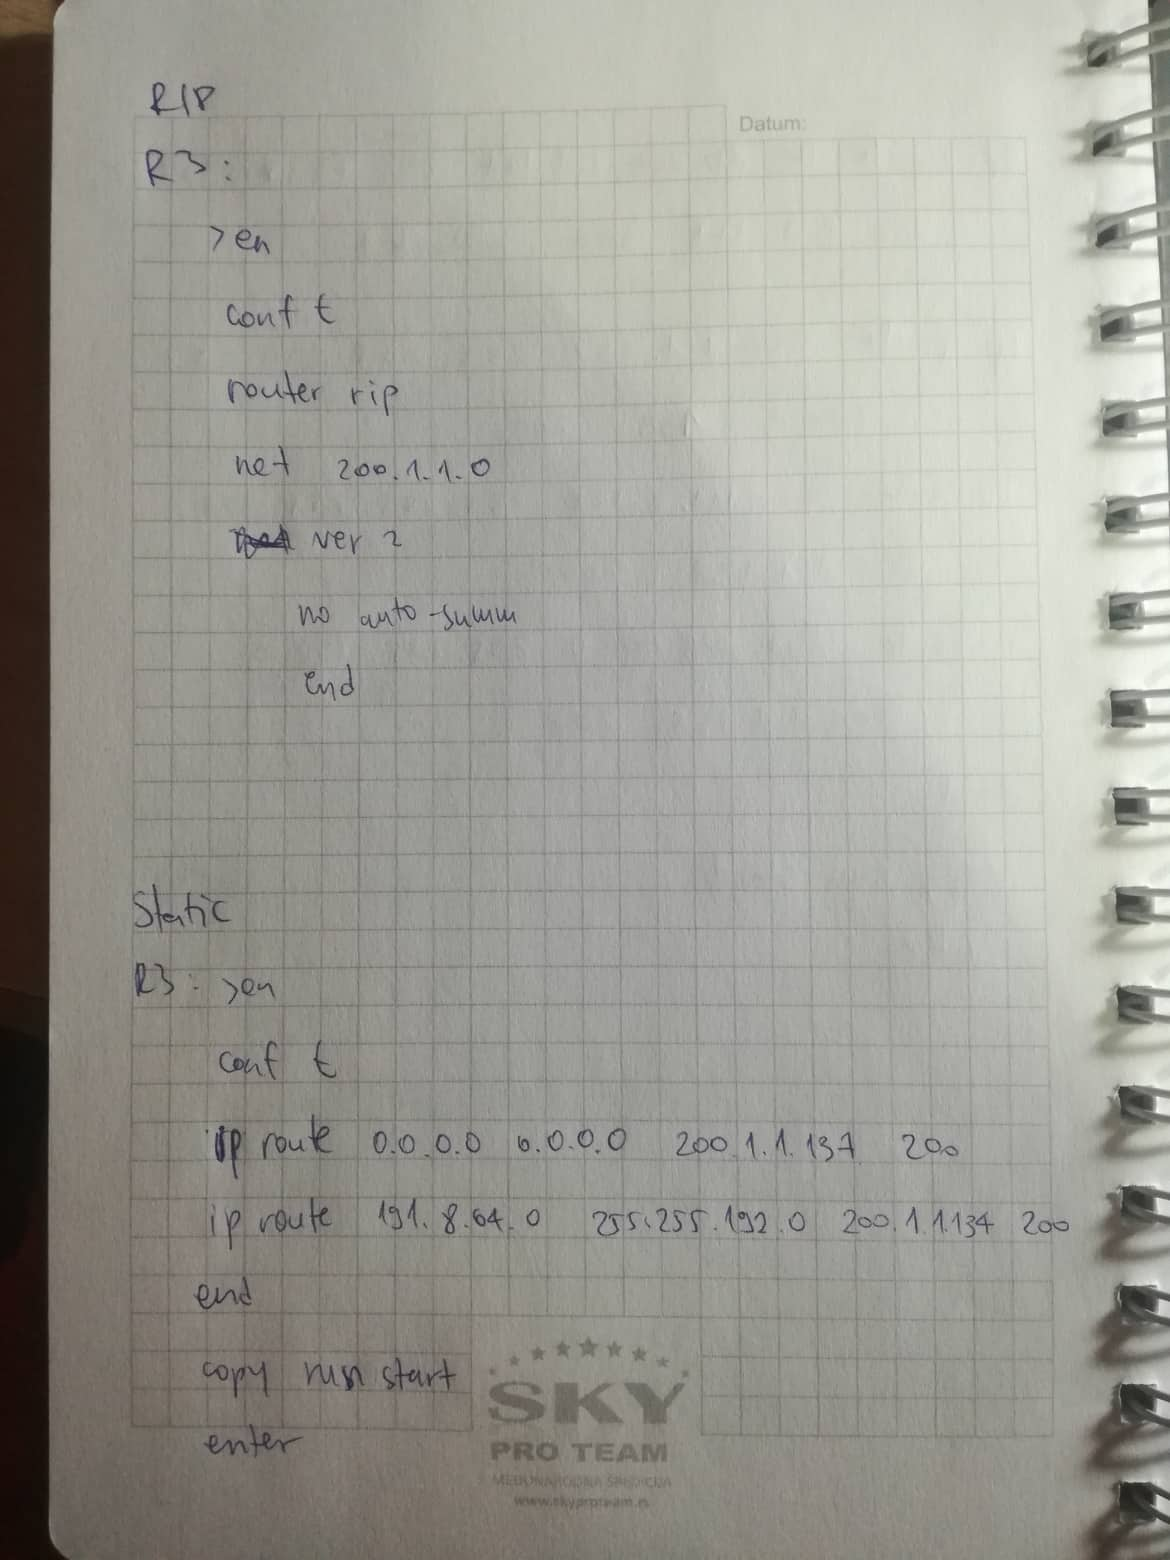 RIP
Datum:
R3:
>en
conf t
router rip
net 200.1.1.0
ver 2
no auto-summ
end
Static
R3: >en
conf t
ip route 0.0.0.0 0.0.0.0 200.1.1.137 200
ip route 191.8.64.0 255.255.192.0 200.1.1.134 200
end
copy run start
enter
SKY
PRO TEAM
MEĐUNARODNA ŠPEDICIJA
www.skyproteam.rs